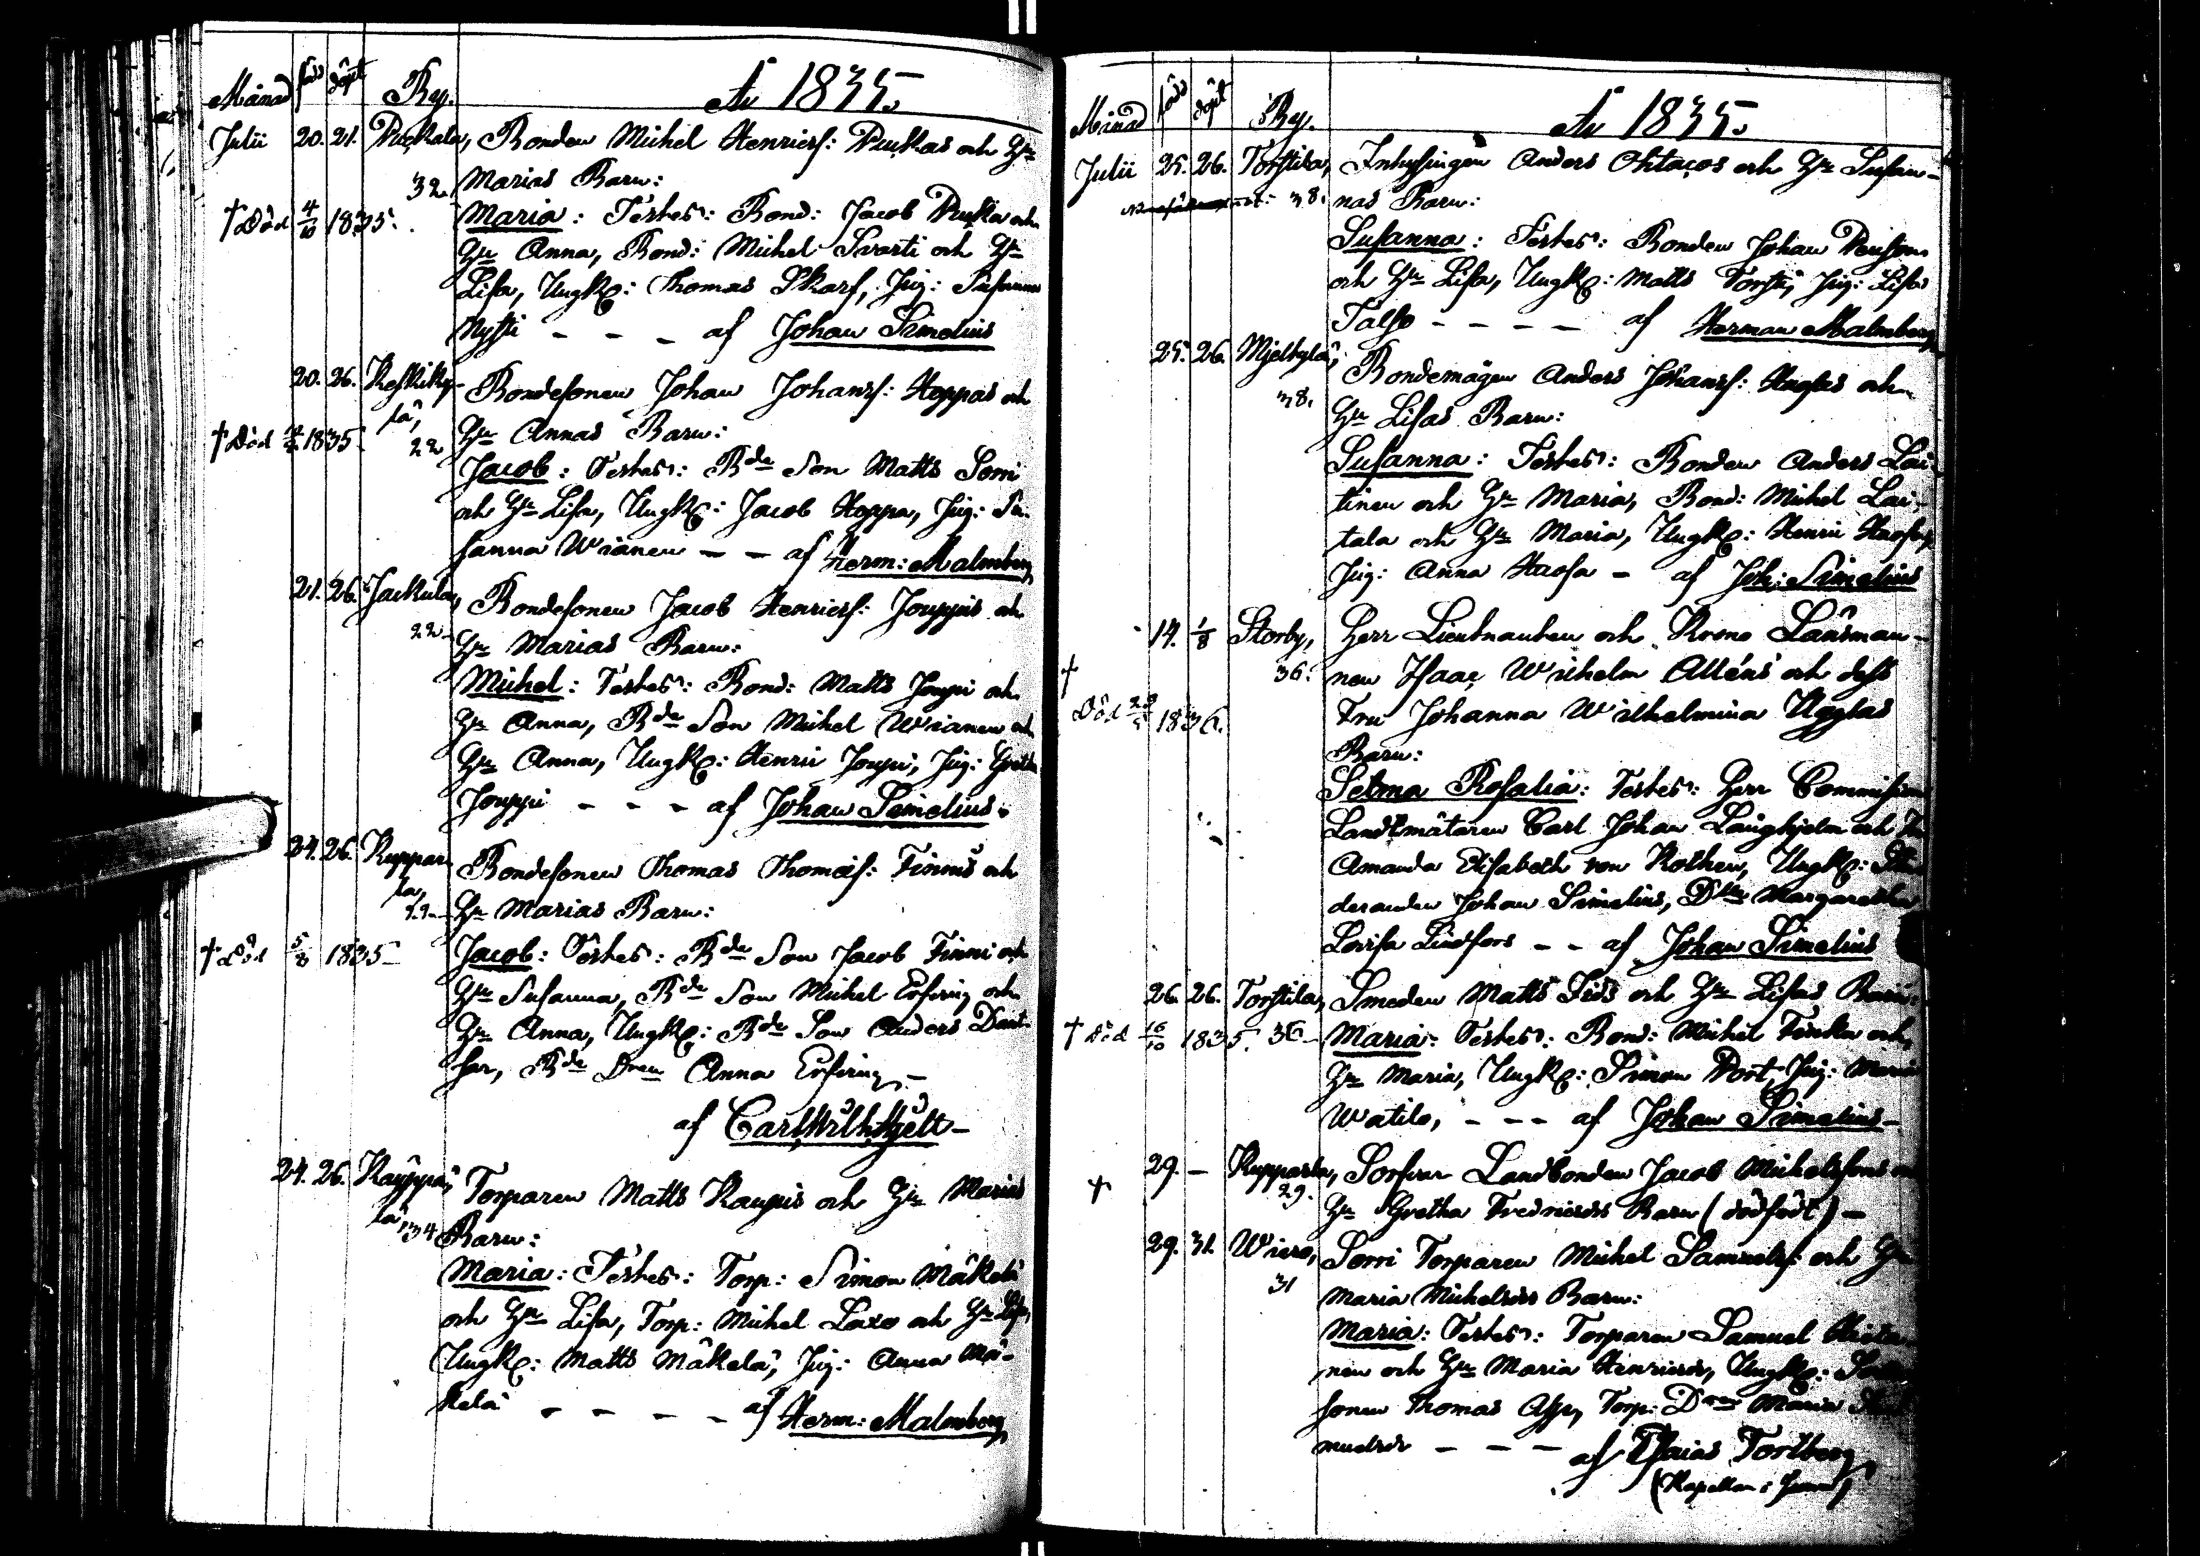 Månad född döpt By. År 1835.
Julii 20. 21. Puckala, Bonden Michel Henricsf: Puckas och H:u
32. Marias Barn:
† Död 4/10 1835. Maria: Testes: Bond: Jacob Pucka och
H:u Anna, Bond: Michel Svarti och H:u
Lisa, UngK: Thomas Skarf, Pig: Susanna
Nysti - - - af Johan Simelius
20. 26. Keskiky- Bondesonen Johan Johansf: Hoppas och
lä, H:u Annas Barn:
† Död 1835 22
Jacob: Testes: B:de Son Matts Sorri
och H:u Lisa, UngK: Jacob Hoppa, Pig: Su-
sanna Wianen - - af Herm: Malmberg
21. 26. Jackula, Bondesonen Jacob Henricsf: Jouppis och
22. H:u Marias Barn:
Michel: Testes: Bond: Matts Jouppi och
H:u Anna, B:de Son Michel Wianen och
H:u Anna, UngK: Henric Jouppi, Pig: Gretha
Jouppi - - - af Johan Simelius.
24. 26. Ruppar- Bondesonen Thomas Thomasf: Finnis och
la, H:u Marias Barn:
29.
† Död 5/8 1835 Jacob: Testes: B:de Son Jacob Finni och
H:u Susanna, B:de Son Michel Erfving och
H:u Anna, UngK: B:de Son Anders Dant-
har, B:de Dren Anna Erfving -
af Carl Wilh. Hjelt -
24. 26. Kauppi- Torparen Matts Kaupis och H:u Marias
lä, 34 Barn:
Maria: Testes: Torp: Simon Mäkelä
och H:u Lisa, Torp: Michel Laxo och H:u Lisa,
UngK: Matts Mäkelä, Pig: Anna Mä-
kelä - - - - af Herm: Malmberg
Månad född döpt By. År 1835.
Julii 25. 26. Torstila, Inhysingen Anders Ohtacos och H:u Susan-
38. nas Barn:
Susanna: Testes: Bonden Johan
och H:u Lisa, UngK: Matts Torsti, Pig: Lisa
Talso - - - - af Herman Malmberg
25. 26. Mjelkylä, Bondemågen Anders Johansf: Huglas och
38. H:u Lisas Barn:
Susanna: Testes: Bonden Anders Lai-
tinen och H:u Maria, Bond: Michel Lai-
tala och H:u Maria, UngK: Henric Haosa,
Pig: Anna Haosa - af Joh: Simelius
14. 1/8 Storby, Herr Lieutnanten och Krono Länsman-
† 36. nen Isaac Wilhelm Alléns och dess
Död 1836. Fru Johanna Wilhelmina Ugglas
Barn:
Selma Rosalia: Testes: Herr Commissions
Landtmätaren Carl Johan Långhjelm och Fru
Amanda Elisabeth von Rothen, UngK: Stu-
deranden Johan Simelius, D:lle Margaretha
Lovisa Lindfors - - af Johan Simelius
26. 26. Torstila, Smeden Matts Fris och H:u Lisas Barn:
† Död 16/10 1835. 36 Maria: Testes: Bond: Michel Tonka och
H:u Maria, UngK: Simon Port, Pig: Maria
Watilo, - - - af Johan Simelius -
29. - Rupparla, Sorfvar Landbonden Jacob Michelsfons och
† 29. H:u Gretha Fredricsdrs Barn (dödfödt) -
29. 31. Wiero, Sorri Torparen Michel Samuelsf: och H:u
31 Maria Michelsdrs Barn:
Maria: Testes: Torparen Samuel
nen och H:u Maria Henricsdr, UngK:
sonen Thomas Ape, Torp: Dren Maria
muelsdr - - - af Esaias Tortberg
(Kapellan i